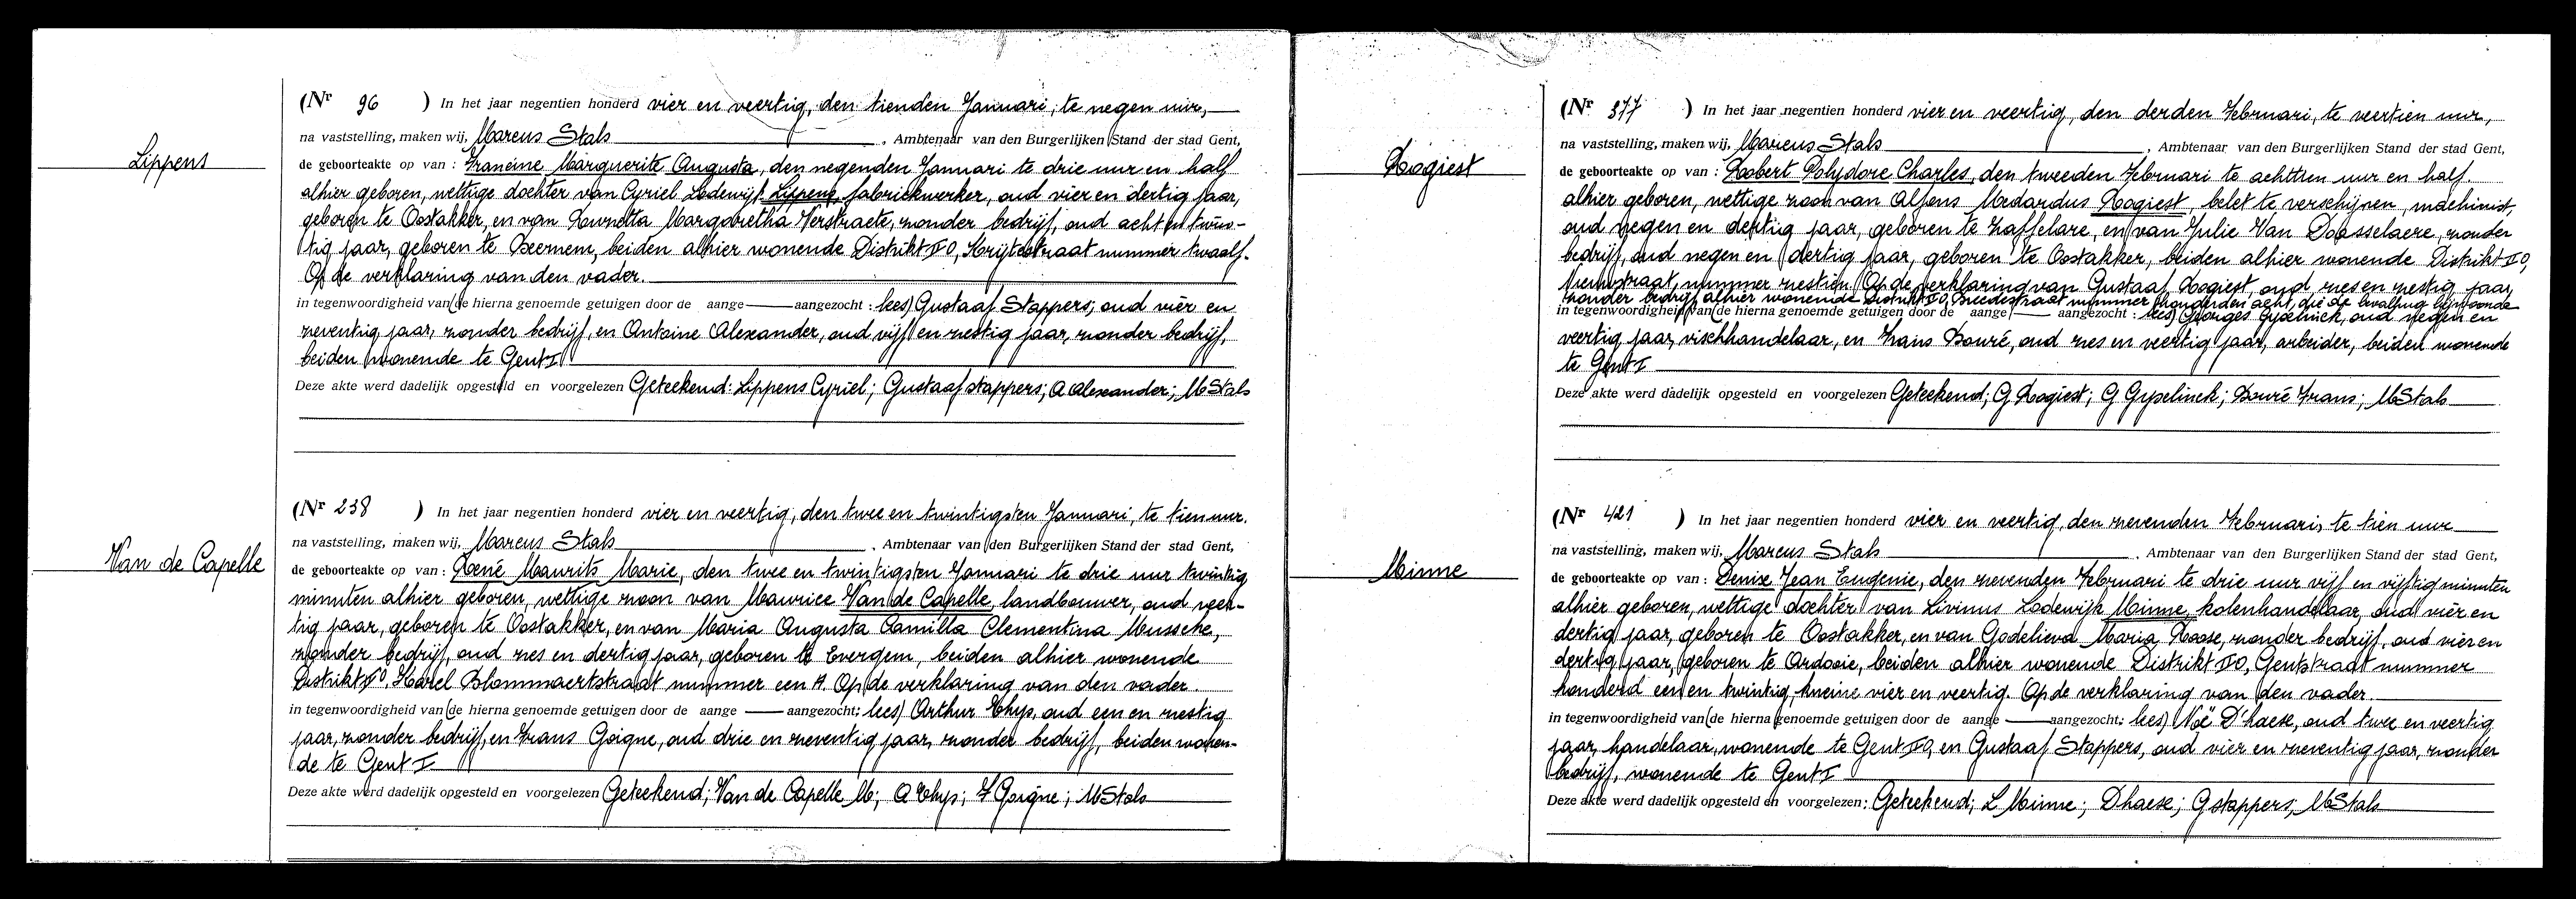 Lippens
(Nr 96 ) In het jaar negentien honderd vier en veertig, den tienden Januari, te negen uur,
na vaststelling, maken wij, Marcus Stals , Ambtenaar van den Burgerlijken Stand der stad Gent,
de geboorteakte op van : Francine Marguerite Augusta, den negenden Januari te drie uur en half
alhier geboren, wettige dochter van Cyriel Lodewijk Lippens, fabriekwerker, oud vier en dertig jaar,
geboren te Oostakker, en van Margaretha Verstraete, zonder bedrijf, oud acht en twin-
tig jaar, geboren te Beernem, beiden alhier wonende Distrikt II O, straat nummer twaalf.
Op de verklaring van den vader.
in tegenwoordigheid van (de hierna genoemde getuigen door de aange — aangezocht : lees) Gustaaf Stappers, oud vier en
zeventig jaar, zonder bedrijf, en Antoine Alexander, oud vijf en zestig jaar, zonder bedrijf,
beiden wonende te Gent I
Deze akte werd dadelijk opgesteld en voorgelezen Geteekend: Lippens Cyriel; Gustaaf Stappers; A Alexander; M Stals
Van de Capelle
(Nr 238 ) In het jaar negentien honderd vier en veertig, den twee en twintigsten Januari, te tien uur.
na vaststelling, maken wij, Marcus Stals , Ambtenaar van den Burgerlijken Stand der stad Gent,
de geboorteakte op van : René Maurits Marie, den twee en twintigsten Januari te drie uur twintig
minuten alhier geboren, wettige zoon van Maurice Van de Capelle, landbouwer, oud veer-
tig jaar, geboren te Oostakker, en van Maria Augusta Camilla Clementina Mussche,
zonder bedrijf, oud zes en dertig jaar, geboren te Evergem, beiden alhier wonende
Distrikt II O, Karel Blommaertstraat nummer een A. Op de verklaring van den vader.
in tegenwoordigheid van (de hierna genoemde getuigen door de aange — aangezocht: lees) Arthur Thys, oud een en zestig
jaar, zonder bedrijf, en Frans Goigne, oud drie en zeventig jaar, zonder bedrijf, beiden wonen-
de te Gent I
Deze akte werd dadelijk opgesteld en voorgelezen Geteekend; Van de Capelle M; A Thys; F Goigne; M Stals
Rogiest
(Nr 377 ) In het jaar negentien honderd vier en veertig, den derden Februari, te veertien uur,
na vaststelling, maken wij, Marcus Stals , Ambtenaar van den Burgerlijken Stand der stad Gent,
de geboorteakte op van : Robert Polydore Charles, den tweeden Februari te achttien uur en half.
alhier geboren, wettige zoon van Alfons Medardus Rogiest, belet te verschijnen, machinist,
oud negen en dertig jaar, geboren te Zaffelare, en van Julie Van Dosselaere, zonder
bedrijf, oud negen en dertig jaar, geboren te Oostakker, beiden alhier wonende Distrikt II O,
nummer zestien. Op de verklaring van Gustaaf Rogiest, oud zes en zestig jaar,
zonder bedrijf, alhier wonende Distrikt II O, Breedestraat nummer honderd en acht, die de bevalling bijwoonde
in tegenwoordigheid van (de hierna genoemde getuigen door de aange — aangezocht : lees) Georges Gyselinck, oud negen en
veertig jaar, vischhandelaar, en Frans Bouré, oud zes en veertig jaar, arbeider, beiden wonende
te Gent I
Deze akte werd dadelijk opgesteld en voorgelezen Geteekend; G Rogiest; G Gyselinck; Bouré Frans; M Stals
Minne
(Nr 421 ) In het jaar negentien honderd vier en veertig, den zevenden Februari, te tien uur
na vaststelling, maken wij, Marcus Stals , Ambtenaar van den Burgerlijken Stand der stad Gent,
de geboorteakte op van : Denise Jean Eugenie, den zevenden Februari te drie uur vijf en vijftig minuten
alhier geboren, wettige dochter van Livinus Lodewijk Minne, kolenhandelaar, oud vier en
dertig jaar, geboren te Oostakker, en van Godelieva Maria Roose, zonder bedrijf, oud vier en
dertig jaar, geboren te Ardooie, beiden alhier wonende Distrikt II O, Gentstraat nummer
honderd een en twintig, vier en veertig. Op de verklaring van den vader.
in tegenwoordigheid van (de hierna genoemde getuigen door de aange — aangezocht: lees) Noë D'haese, oud twee en veertig
jaar, handelaar, wonende te Gent II O, en Gustaaf Stappers, oud vier en zeventig jaar, zonder
bedrijf, wonende te Gent I
Deze akte werd dadelijk opgesteld en voorgelezen: Geteekend; L Minne; Dhaese; G stappers, M Stals